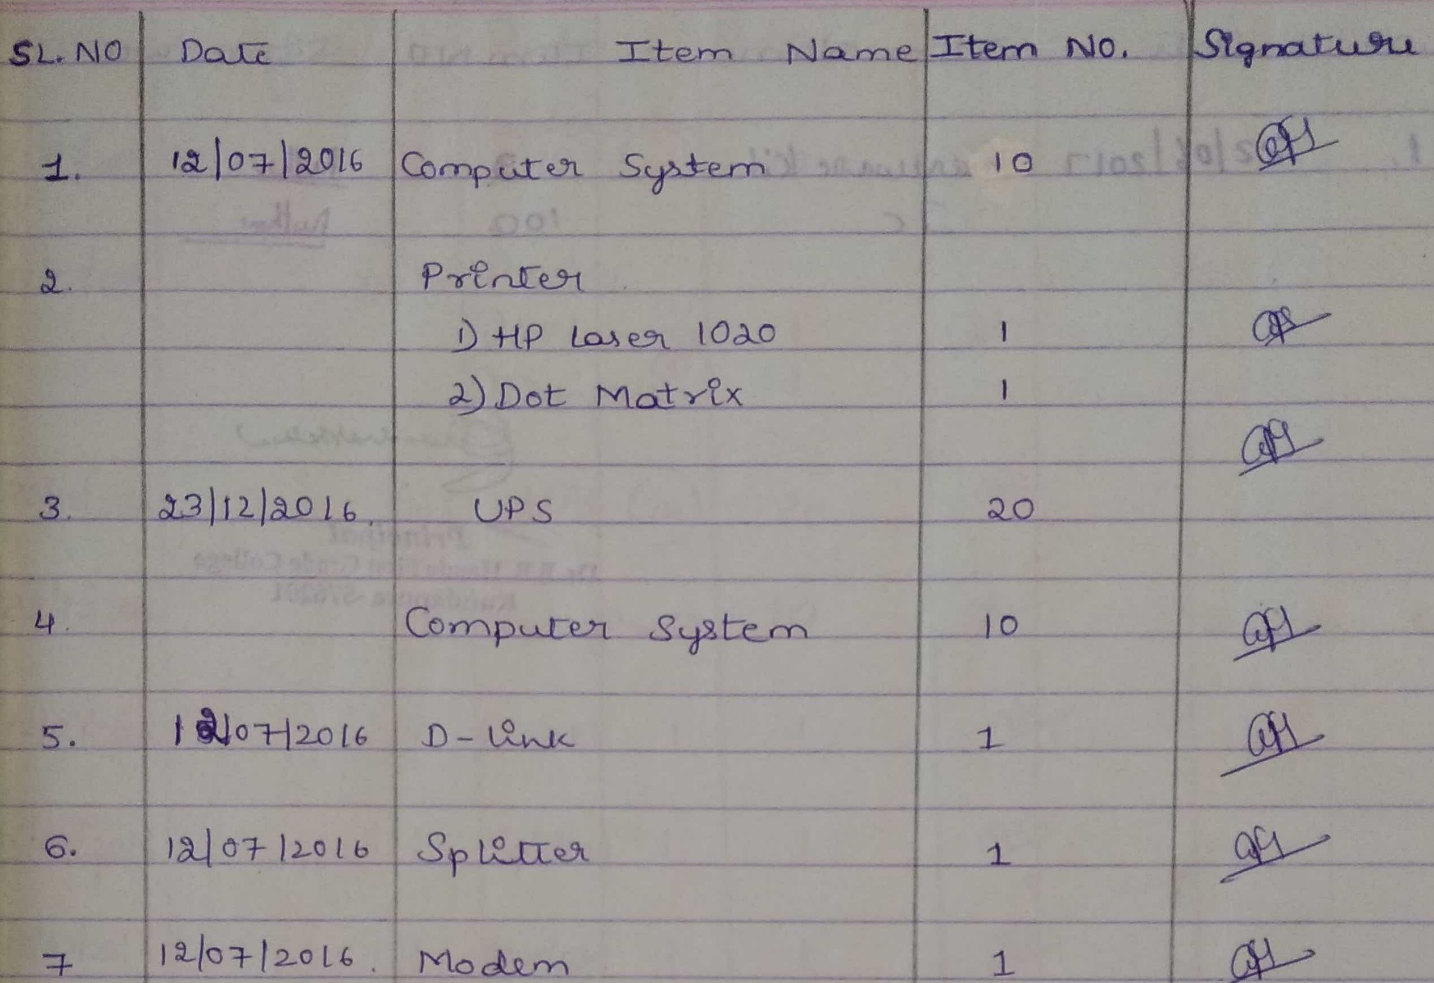 SL. NO Date Item Name Item No. Signature
1. 12/07/2016 Computer System 10
2. Printer
1) HP Laser 1020 1
2) Dot Matrix 1
3. 23/12/2016. UPS 20
4. Computer System 10
5. 12/07/2016 D-Link 1
6. 12/07/2016 Splitter 1
7 12/07/2016. Modem 1